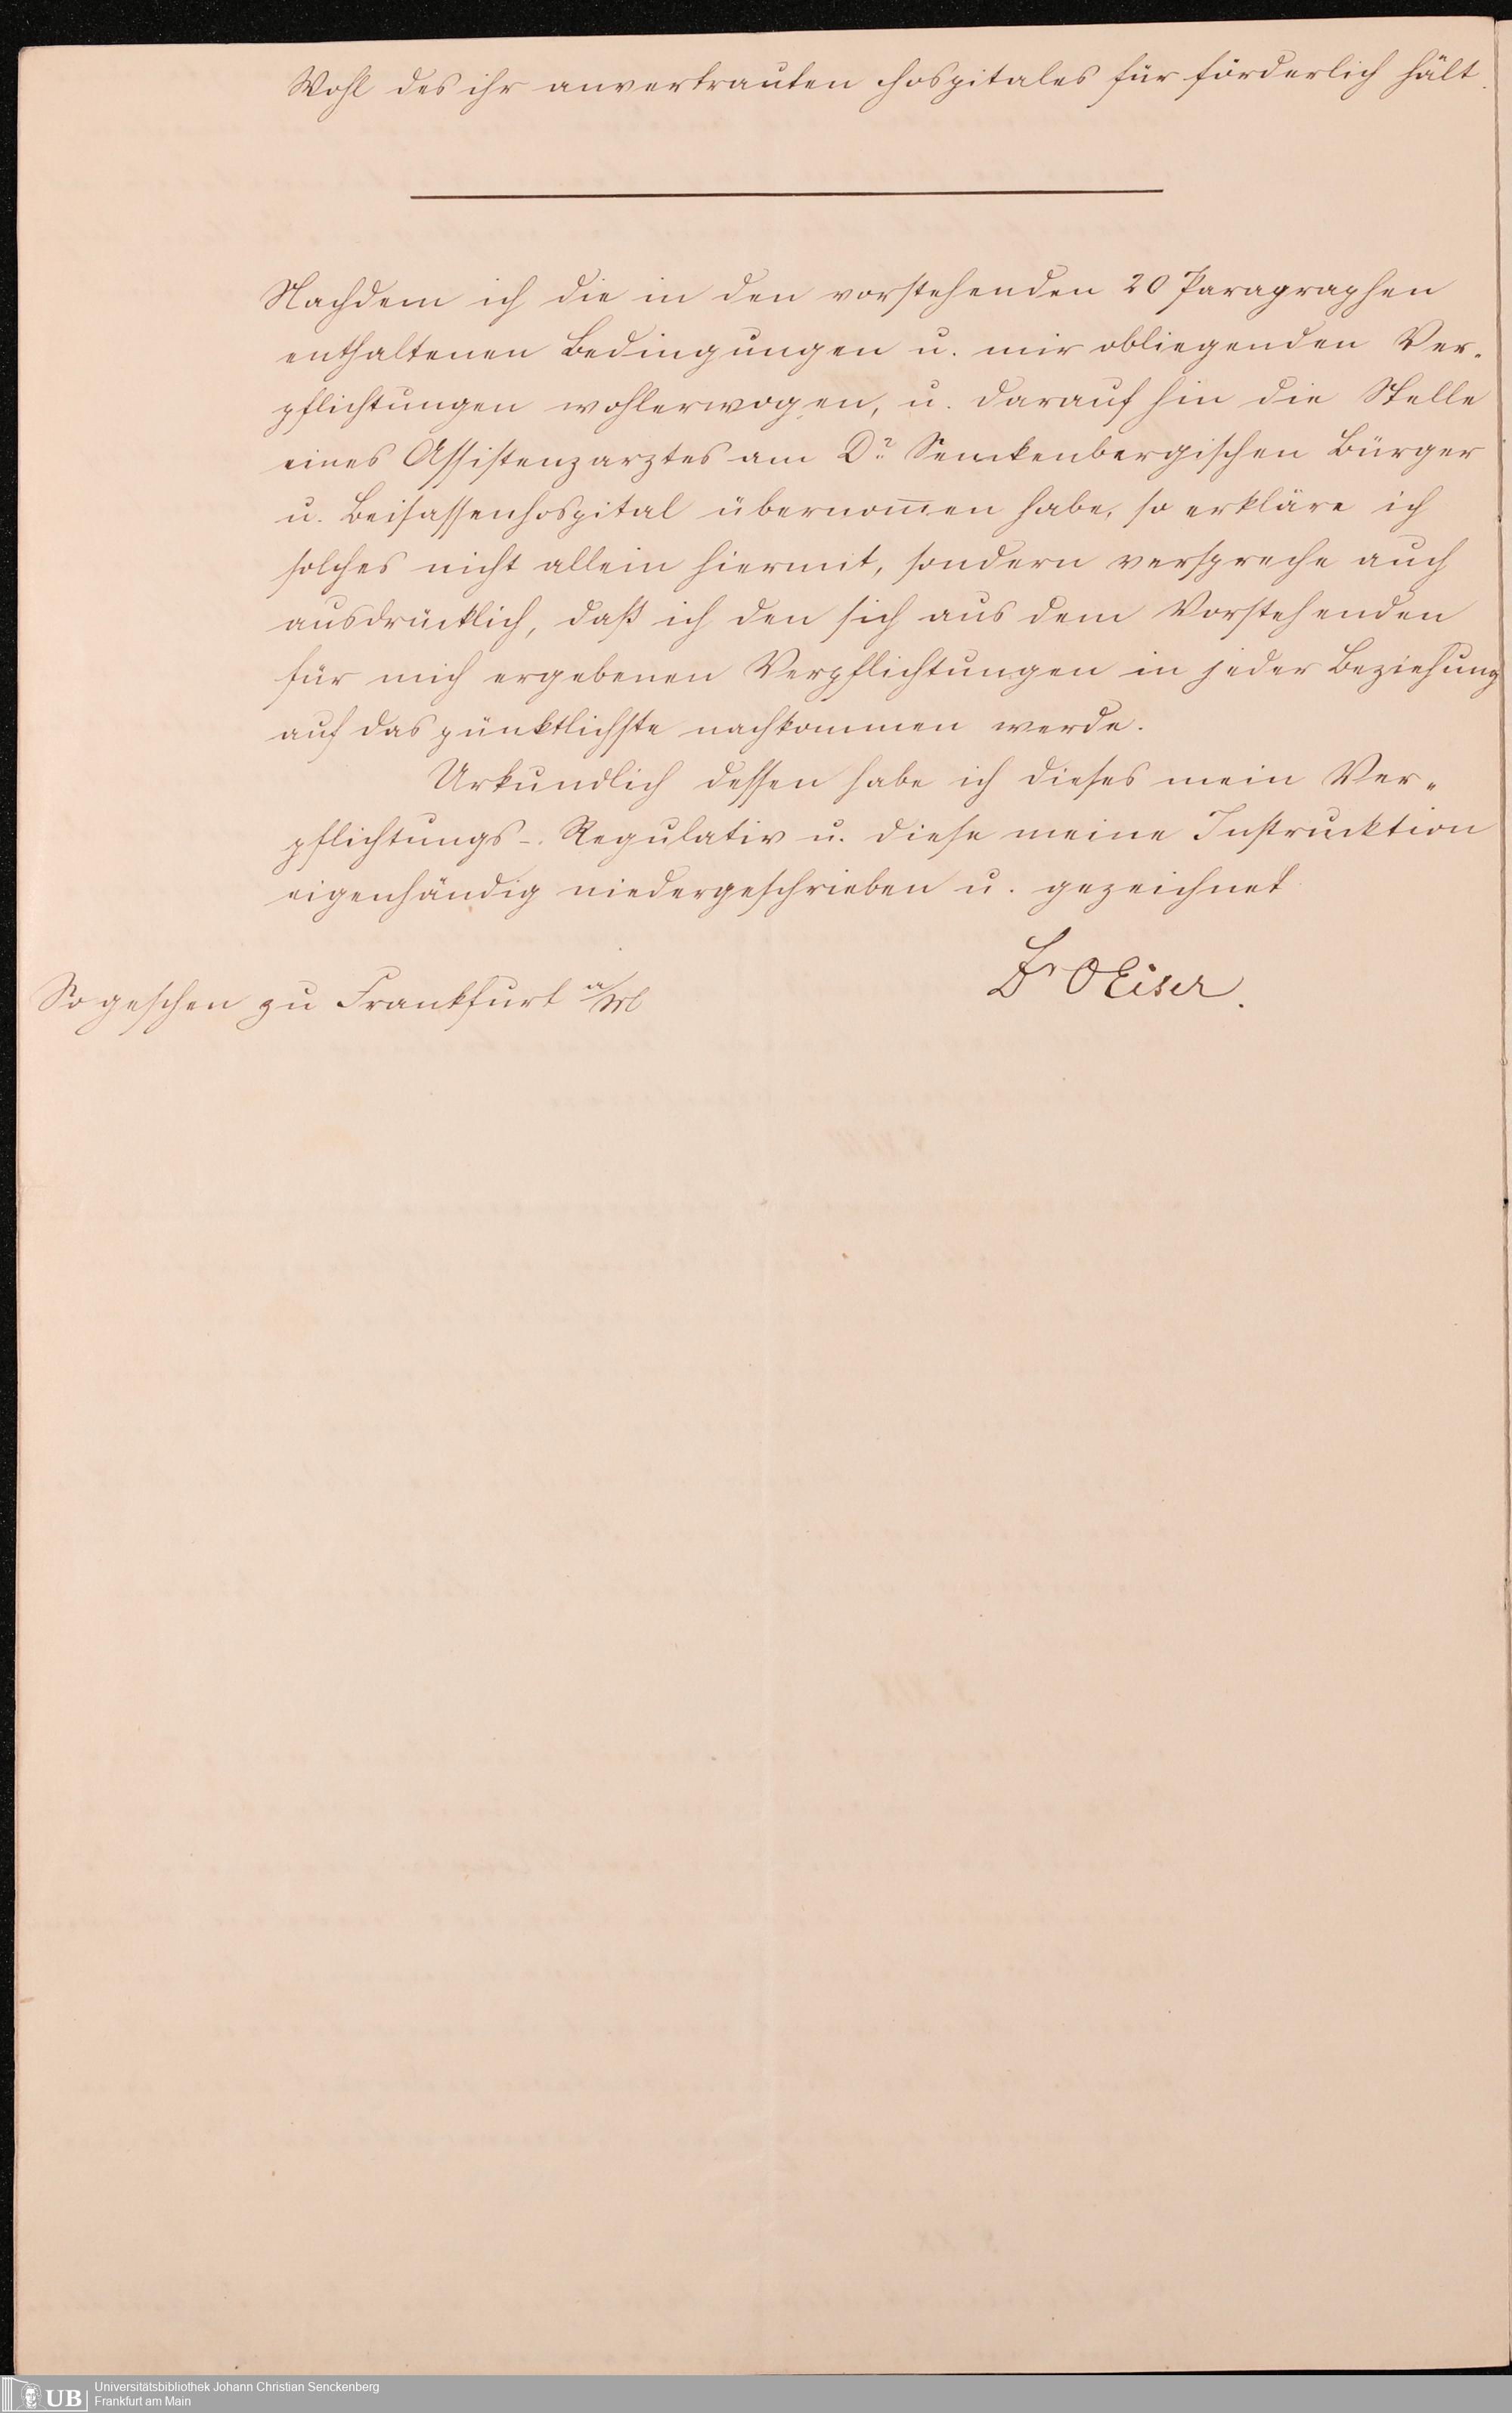 Wohl des ihr anvertrauten Hospitales für förderlich hält.
Nachdem ich die in den vorstehenden 20 Paragraphen
enthaltenen Bedingungen u. mir obliegenden Ver-
pflichtungen wohlerwogen, u. darauf hin die Stelle
eines Assistenzarztes am Dr. Senckenbergischen Bürger
u. Beisassenhospital übernom̄en habe, so erkläre ich
solches nicht allein hiermit, sondern verspreche auch
ausdrücklich, daß ich den sich aus dem Vorstehenden
für mich ergebenen Verpflichtungen in jeder Beziehung
auf das pünktlichste nachkommen werde.
Urkundlich dessen habe ich dieses mein Ver-
pflichtungs-. Regulativ u. diese meine Instrucktion
eigenhändig niedergeschrieben u. gezeichnet
Dr OEiser.
So geschen zu Frankfurt a/M
UB
Universitätsbibliothek Johann Christian Senckenberg
Frankfurt am Main